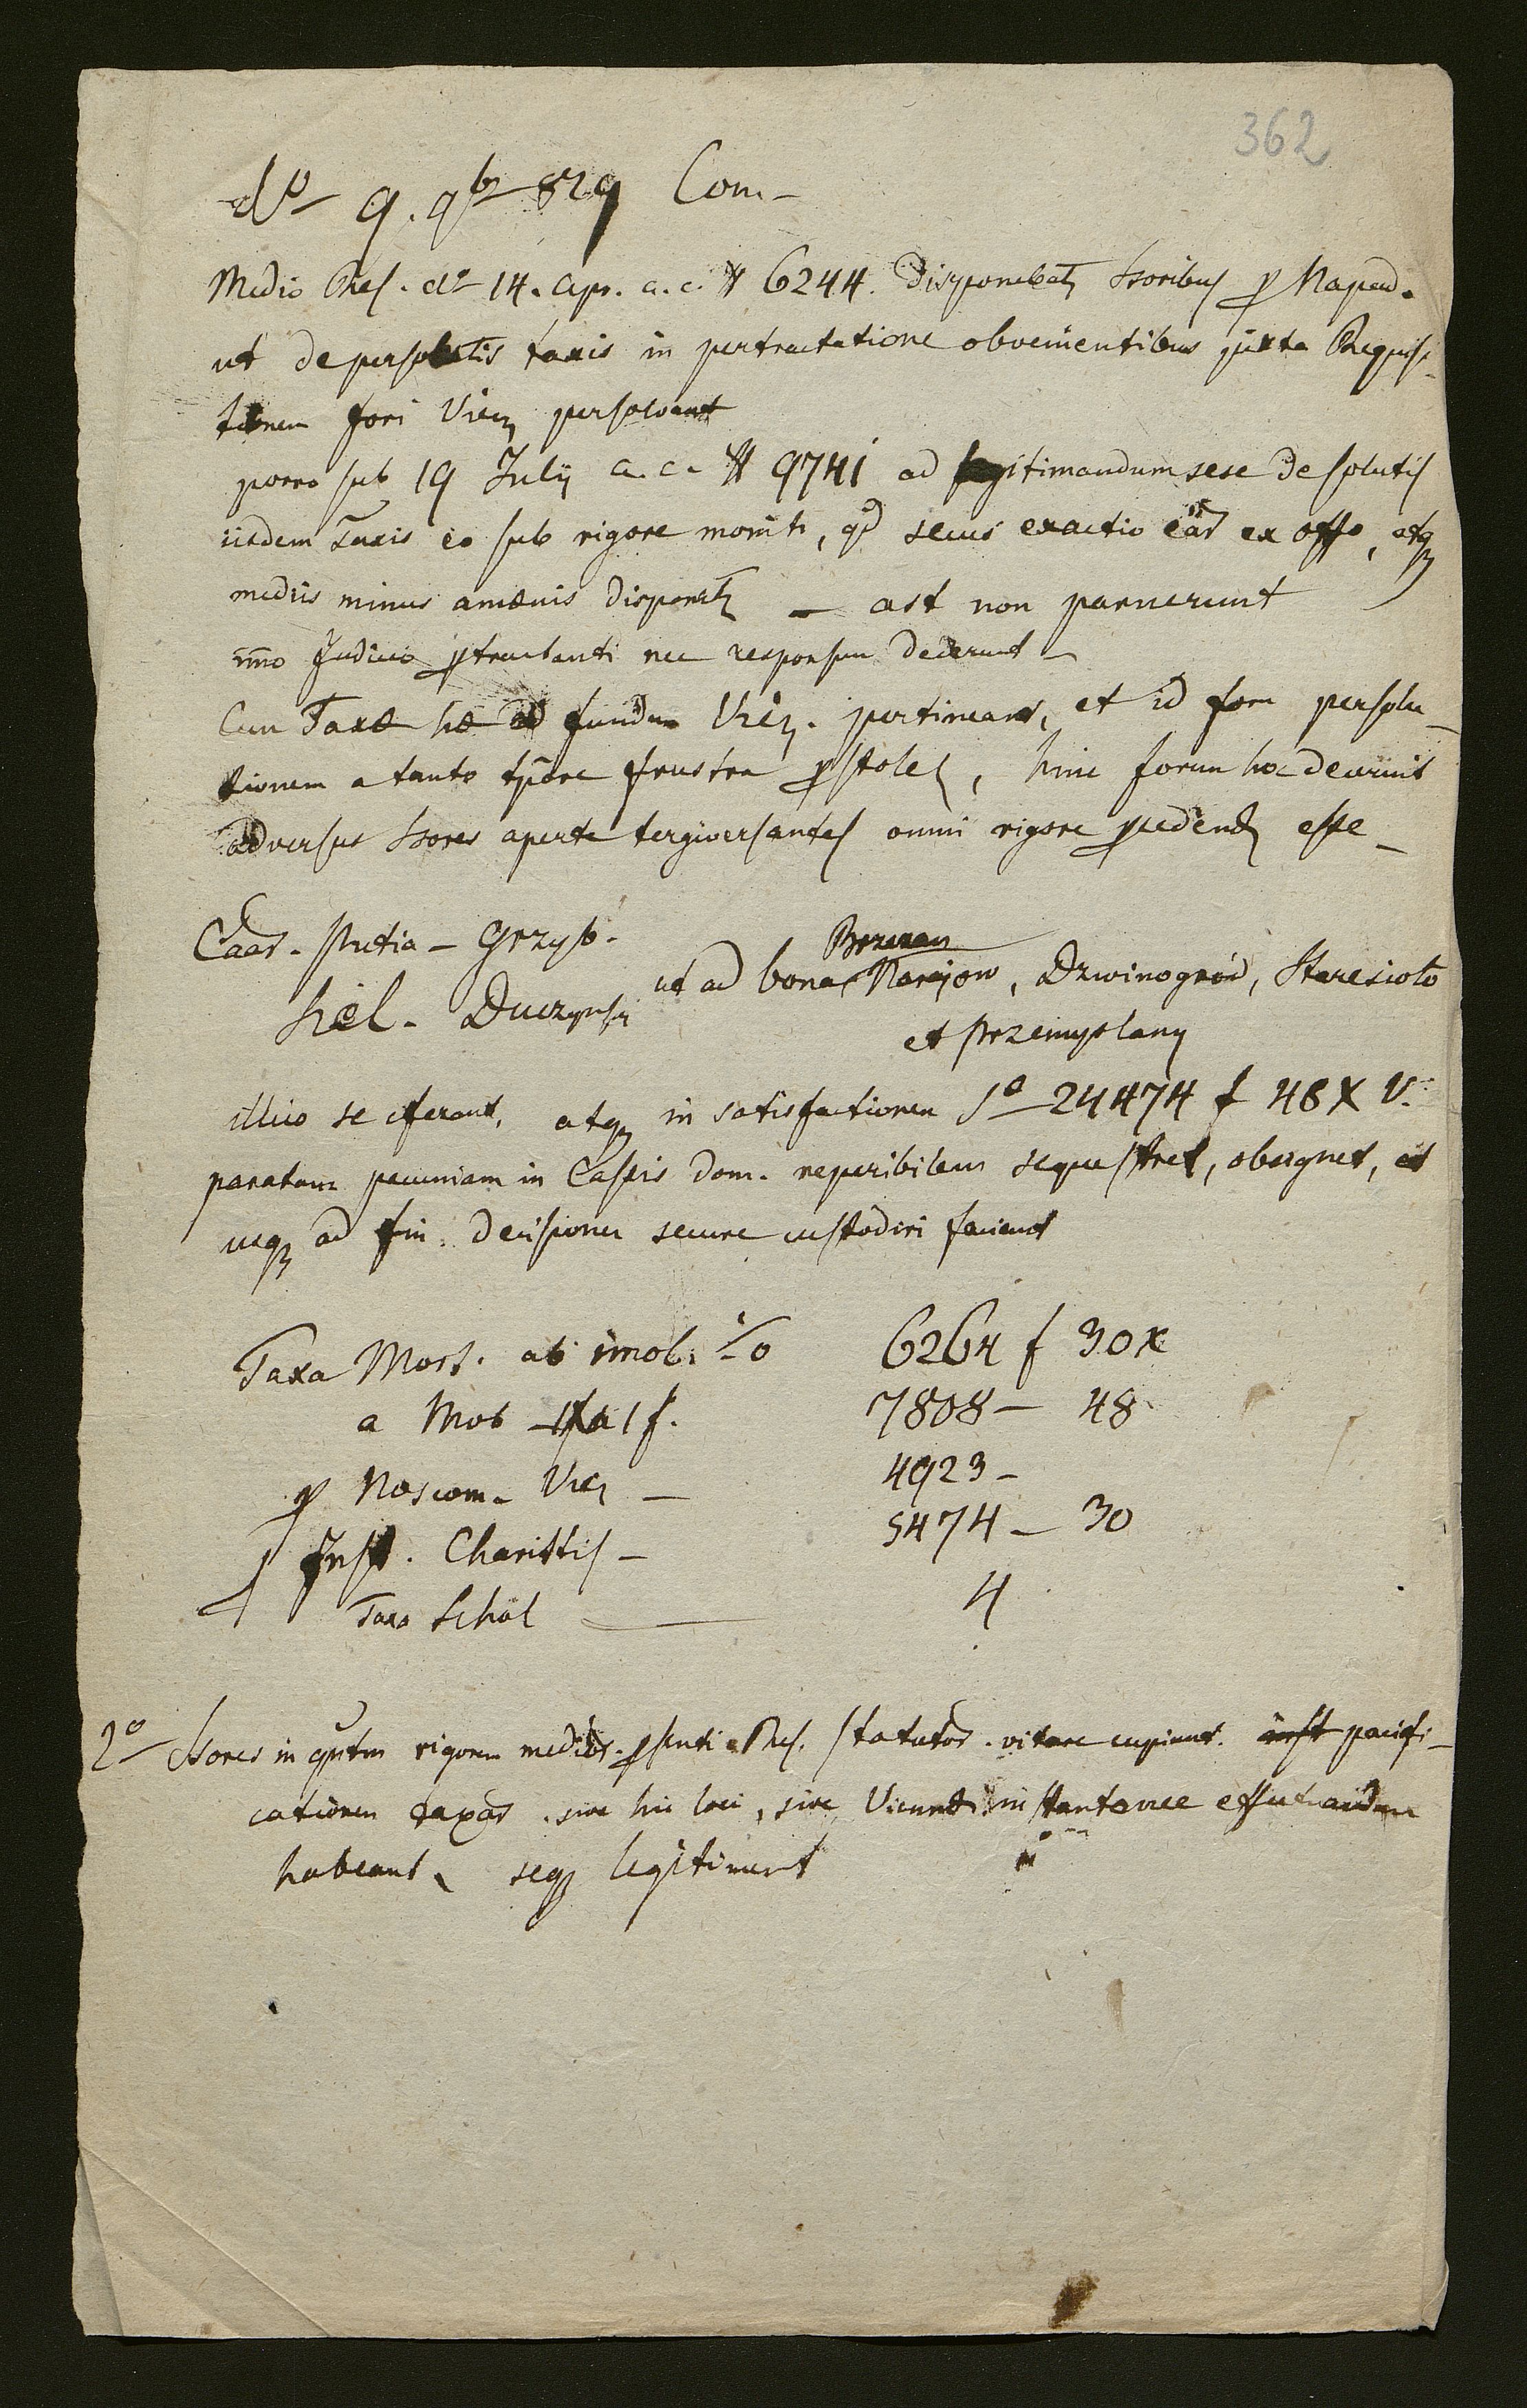 362
dto 9. 9br 829 Com-
Medio Res. dto 14. Apr. a. c. N 6244. Disponebat Ssoribus p Mapend.
ut de persolutis taxis in pertractatione obvenientibus juxta Requisi-
tionem fori Vien persolvant
porro sub 19 Julii a. c. N 9741 ad legitimandum sese de solutis
iisdem Taxis eo sub rigore moniti, qd secus exactio ear ex offo, atq
mediis minus amœnis disponet — ast non paruerunt
imo Judicio ptractanti nec responsum dederunt —
Cum Taxæ hæ ad fundum Vien. pertineant, et id forum persolu-
tionem a tanto tpore frustra pstolet, hinc forum hoc decrevit
adversus Ssores aperte tergiversantes omni rigore pcedend esse —
Caar. Putia - Grzyb.
hiel. Duczynski
ut ad bona Brzezan Narajow, Dzwinogród, Staresioło
et Przemyslany
illico se cferant, atq in satisfactionem So 24474 f 48 X V.
paratam pecuniam in Cassis dom. reperibilem sequestret, obsignet, et
usq ad fin. decisionem secure custodiri faciant
Taxa Mort. ab imob. 1/o 6264 f 30 x
a Mob 1 f. 7808 — 48
p Noscom. Vien — 4923 —
Inst. Charittis — 5474 — 30
Taxa Schol — 4
2o Ssores in qntm rigorem medior. psenti Res. statutor. vitare cupiunt. pacifi-
cationem taxar. sive hic loci, sive Viennæ instantanee effectuandam
habeant, seq legitiment